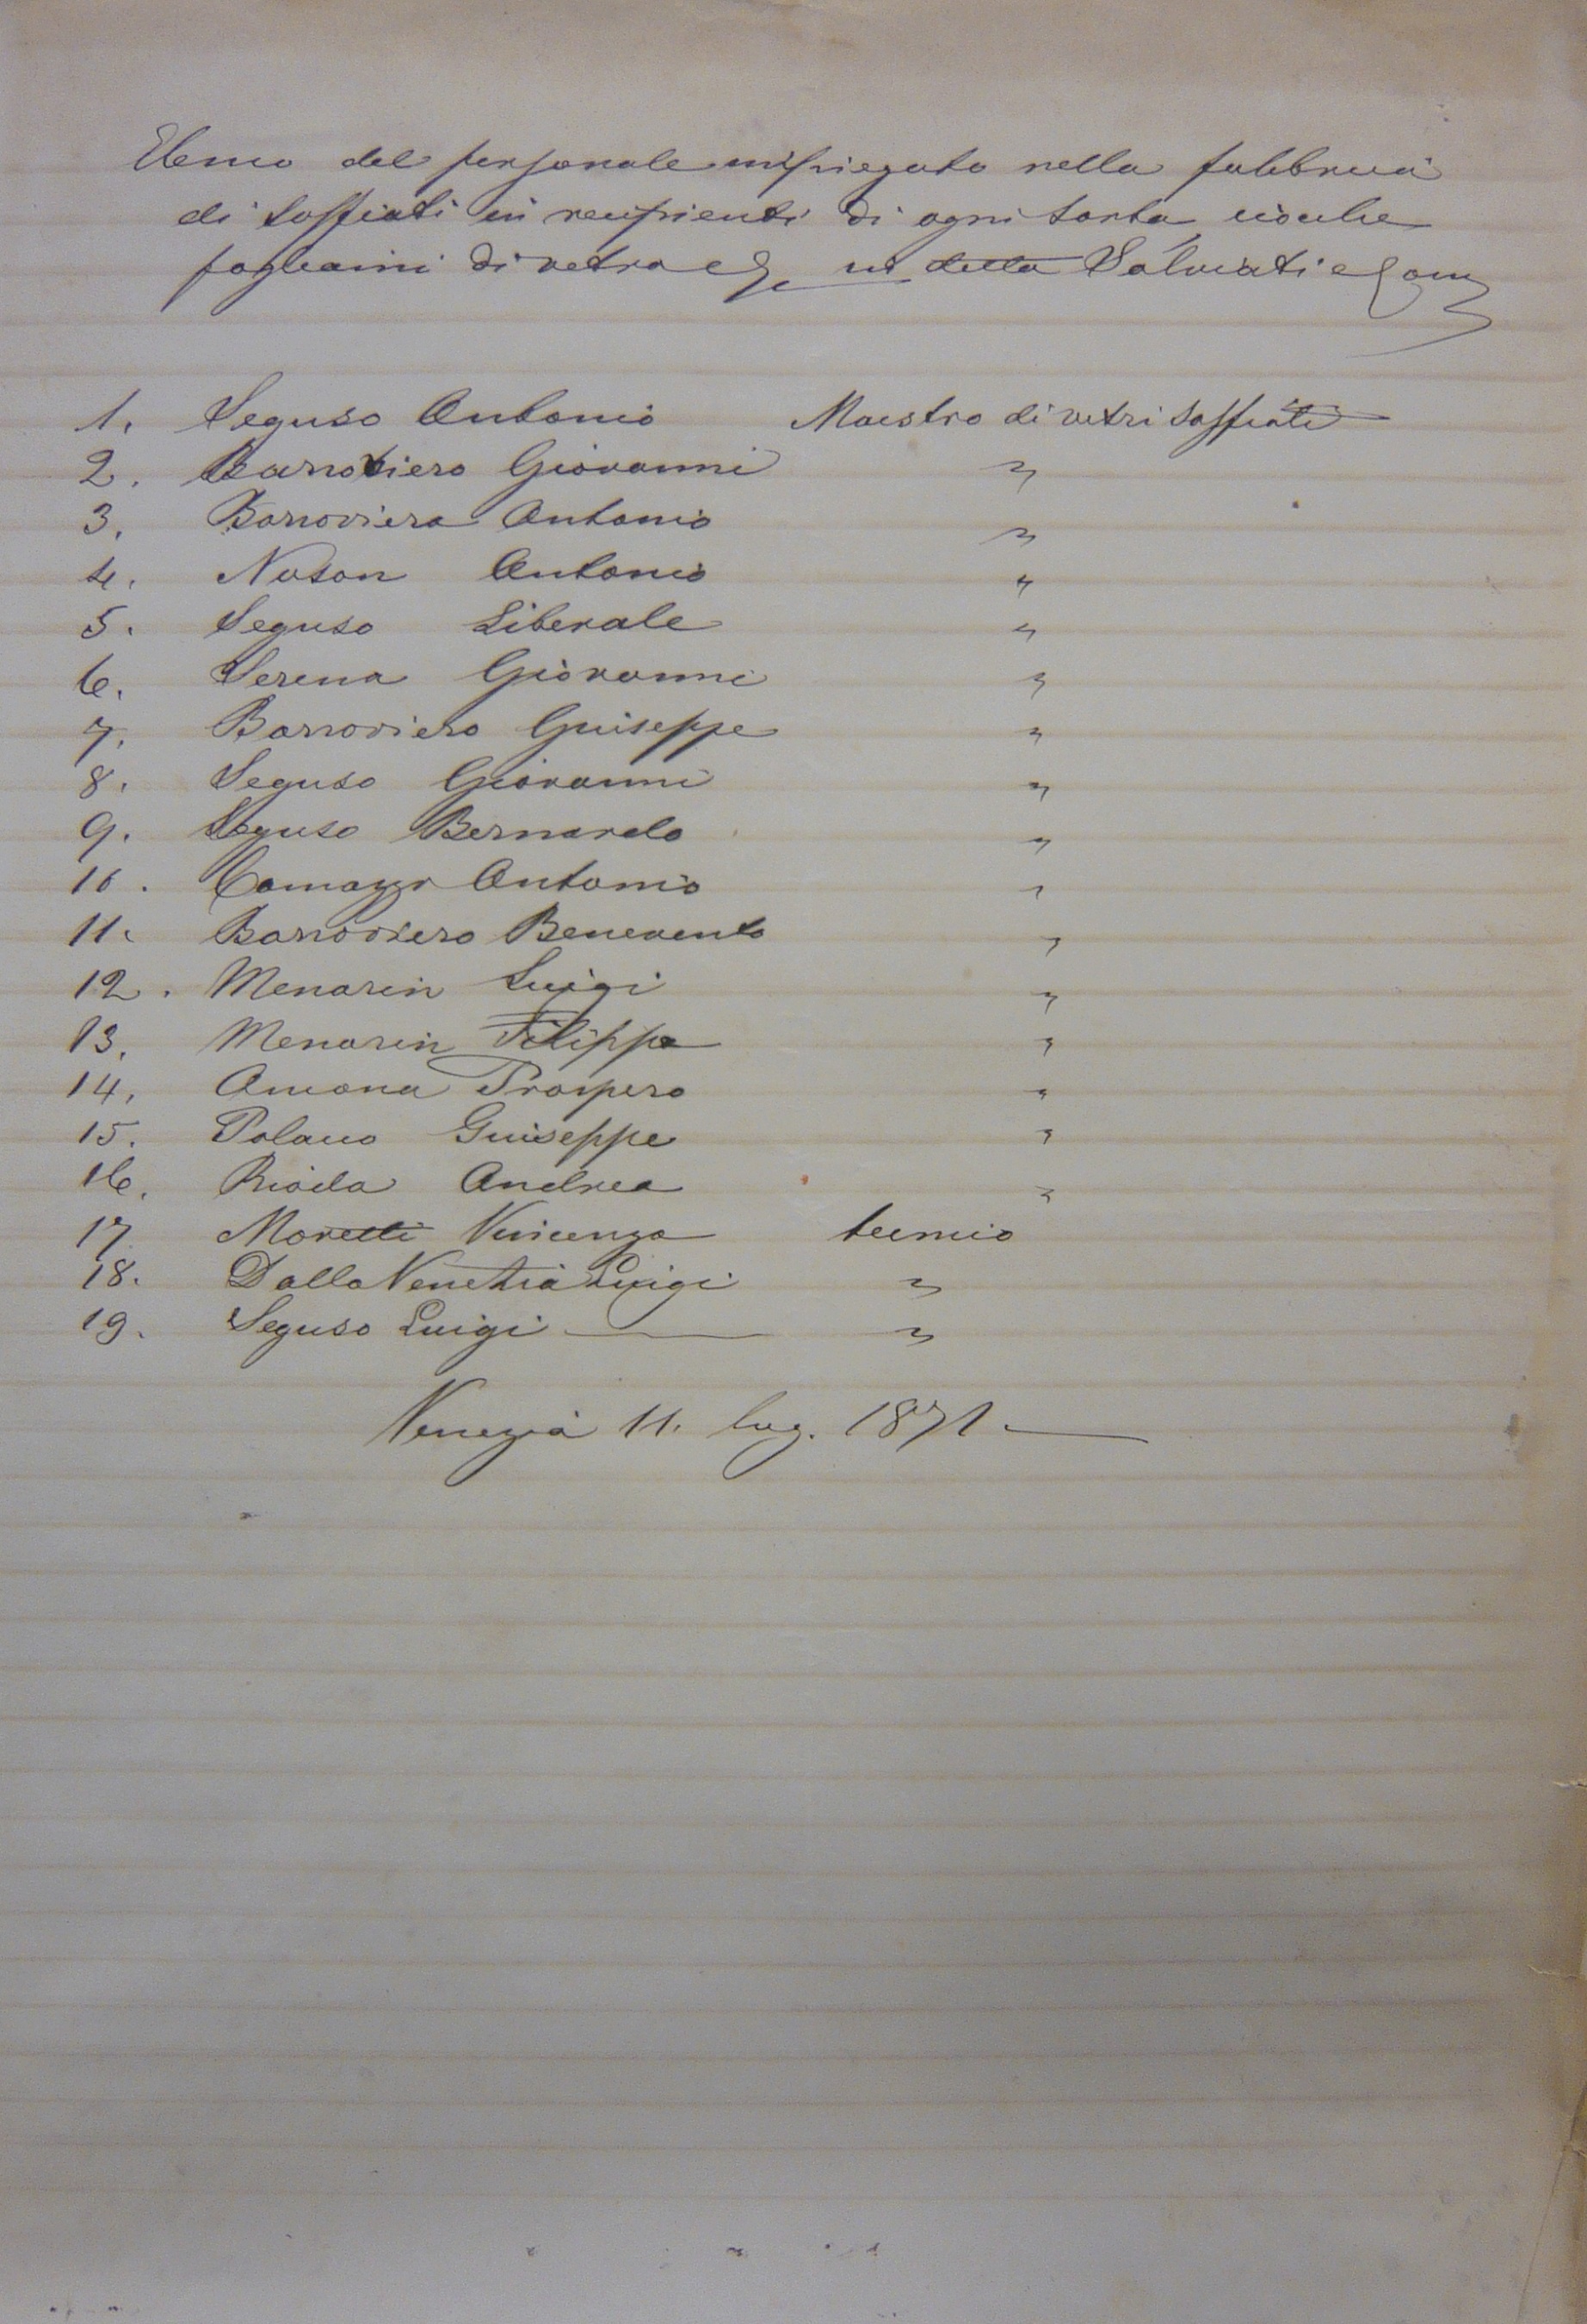 Elenco del personale impiegato nella fabbrica
di soffiati in recipienti di ogni sorta, cioè che
fogliami di vetro in ditta Salviati e Com
1. Seguso Antonio Maestro di vetri soffiati
2. Barroviero Giovanni "
3. Barroviero Antonio "
4. Nason Antonio "
5. Seguso Liberale "
6. Serena Giovanni "
7. Barroviero Giuseppe "
8. Seguso Giovanni "
9. Seguso Bernardo "
10. Camozzo Antonio "
11. Barroviero Benevento "
12. Menarin Luigi "
13. Menarin Filippo "
14. Ancona Prospero "
15. Polacco Giuseppe "
16. Rioda Andrea "
17 Moretti Vincenzo tecnico
18. Dalla Venezia Luigi "
19. Seguso Luigi "
Venezia 11. lug. 1871